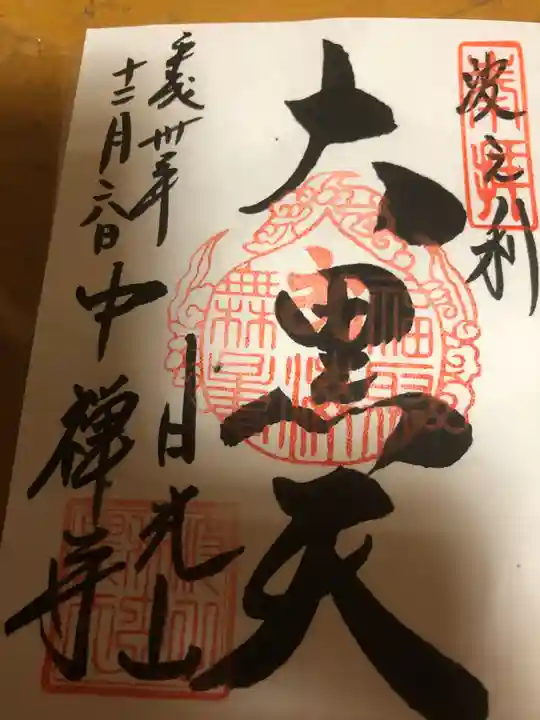 奉拝
波之利
大黒天
平成卅年
十二月六日
日光山
中禅寺